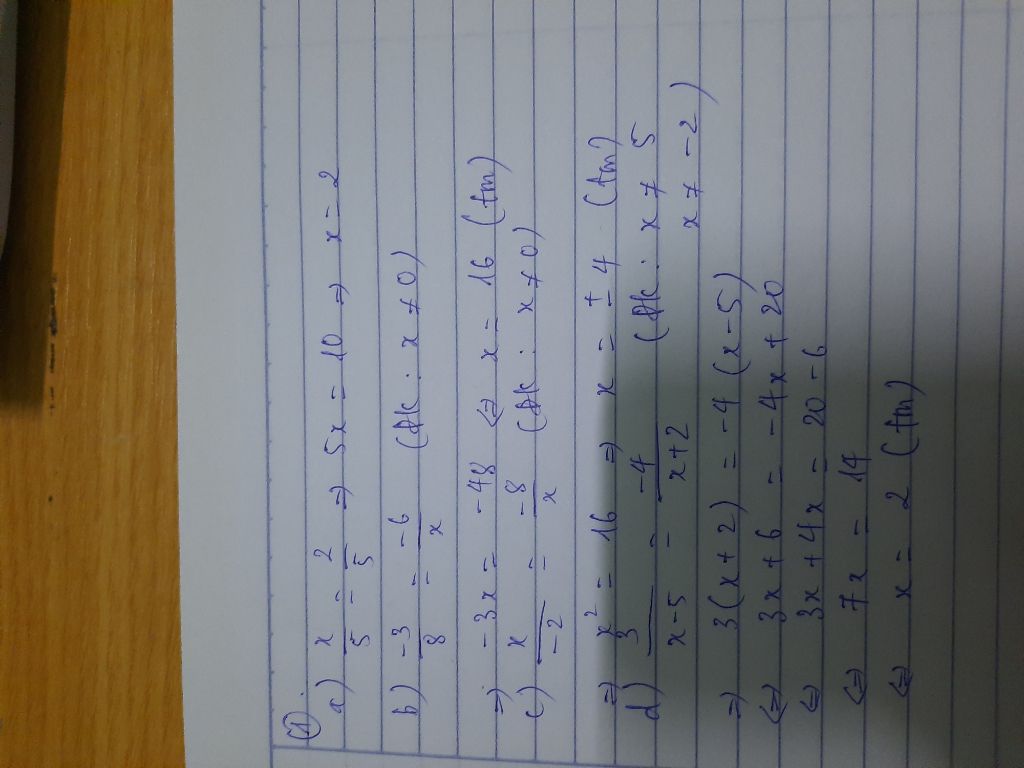 ①
a) x/5 = 2/5 ⇒ 5x = 10 ⇒ x = 2
b) -3/8 = -6/x (đk: x ≠ 0)
⇒ -3x = -48 ⇔ x = 16 (tm)
c) x/-2 = -8/x (đk: x ≠ 0)
⇒ x² = 16 ⇒ x = ±4 (tm)
d) 3/x-5 = -4/x+2 (đk: x ≠ 5
x ≠ -2)
⇒ 3(x+2) = -4(x-5)
⇔ 3x + 6 = -4x + 20
⇔ 3x + 4x = 20 - 6
⇔ 7x = 14
⇔ x = 2 (tm)